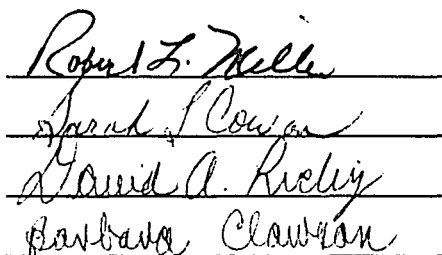 Robert L. Miller
Sarah L Cowan
David A. Richy
Barbara Clawson